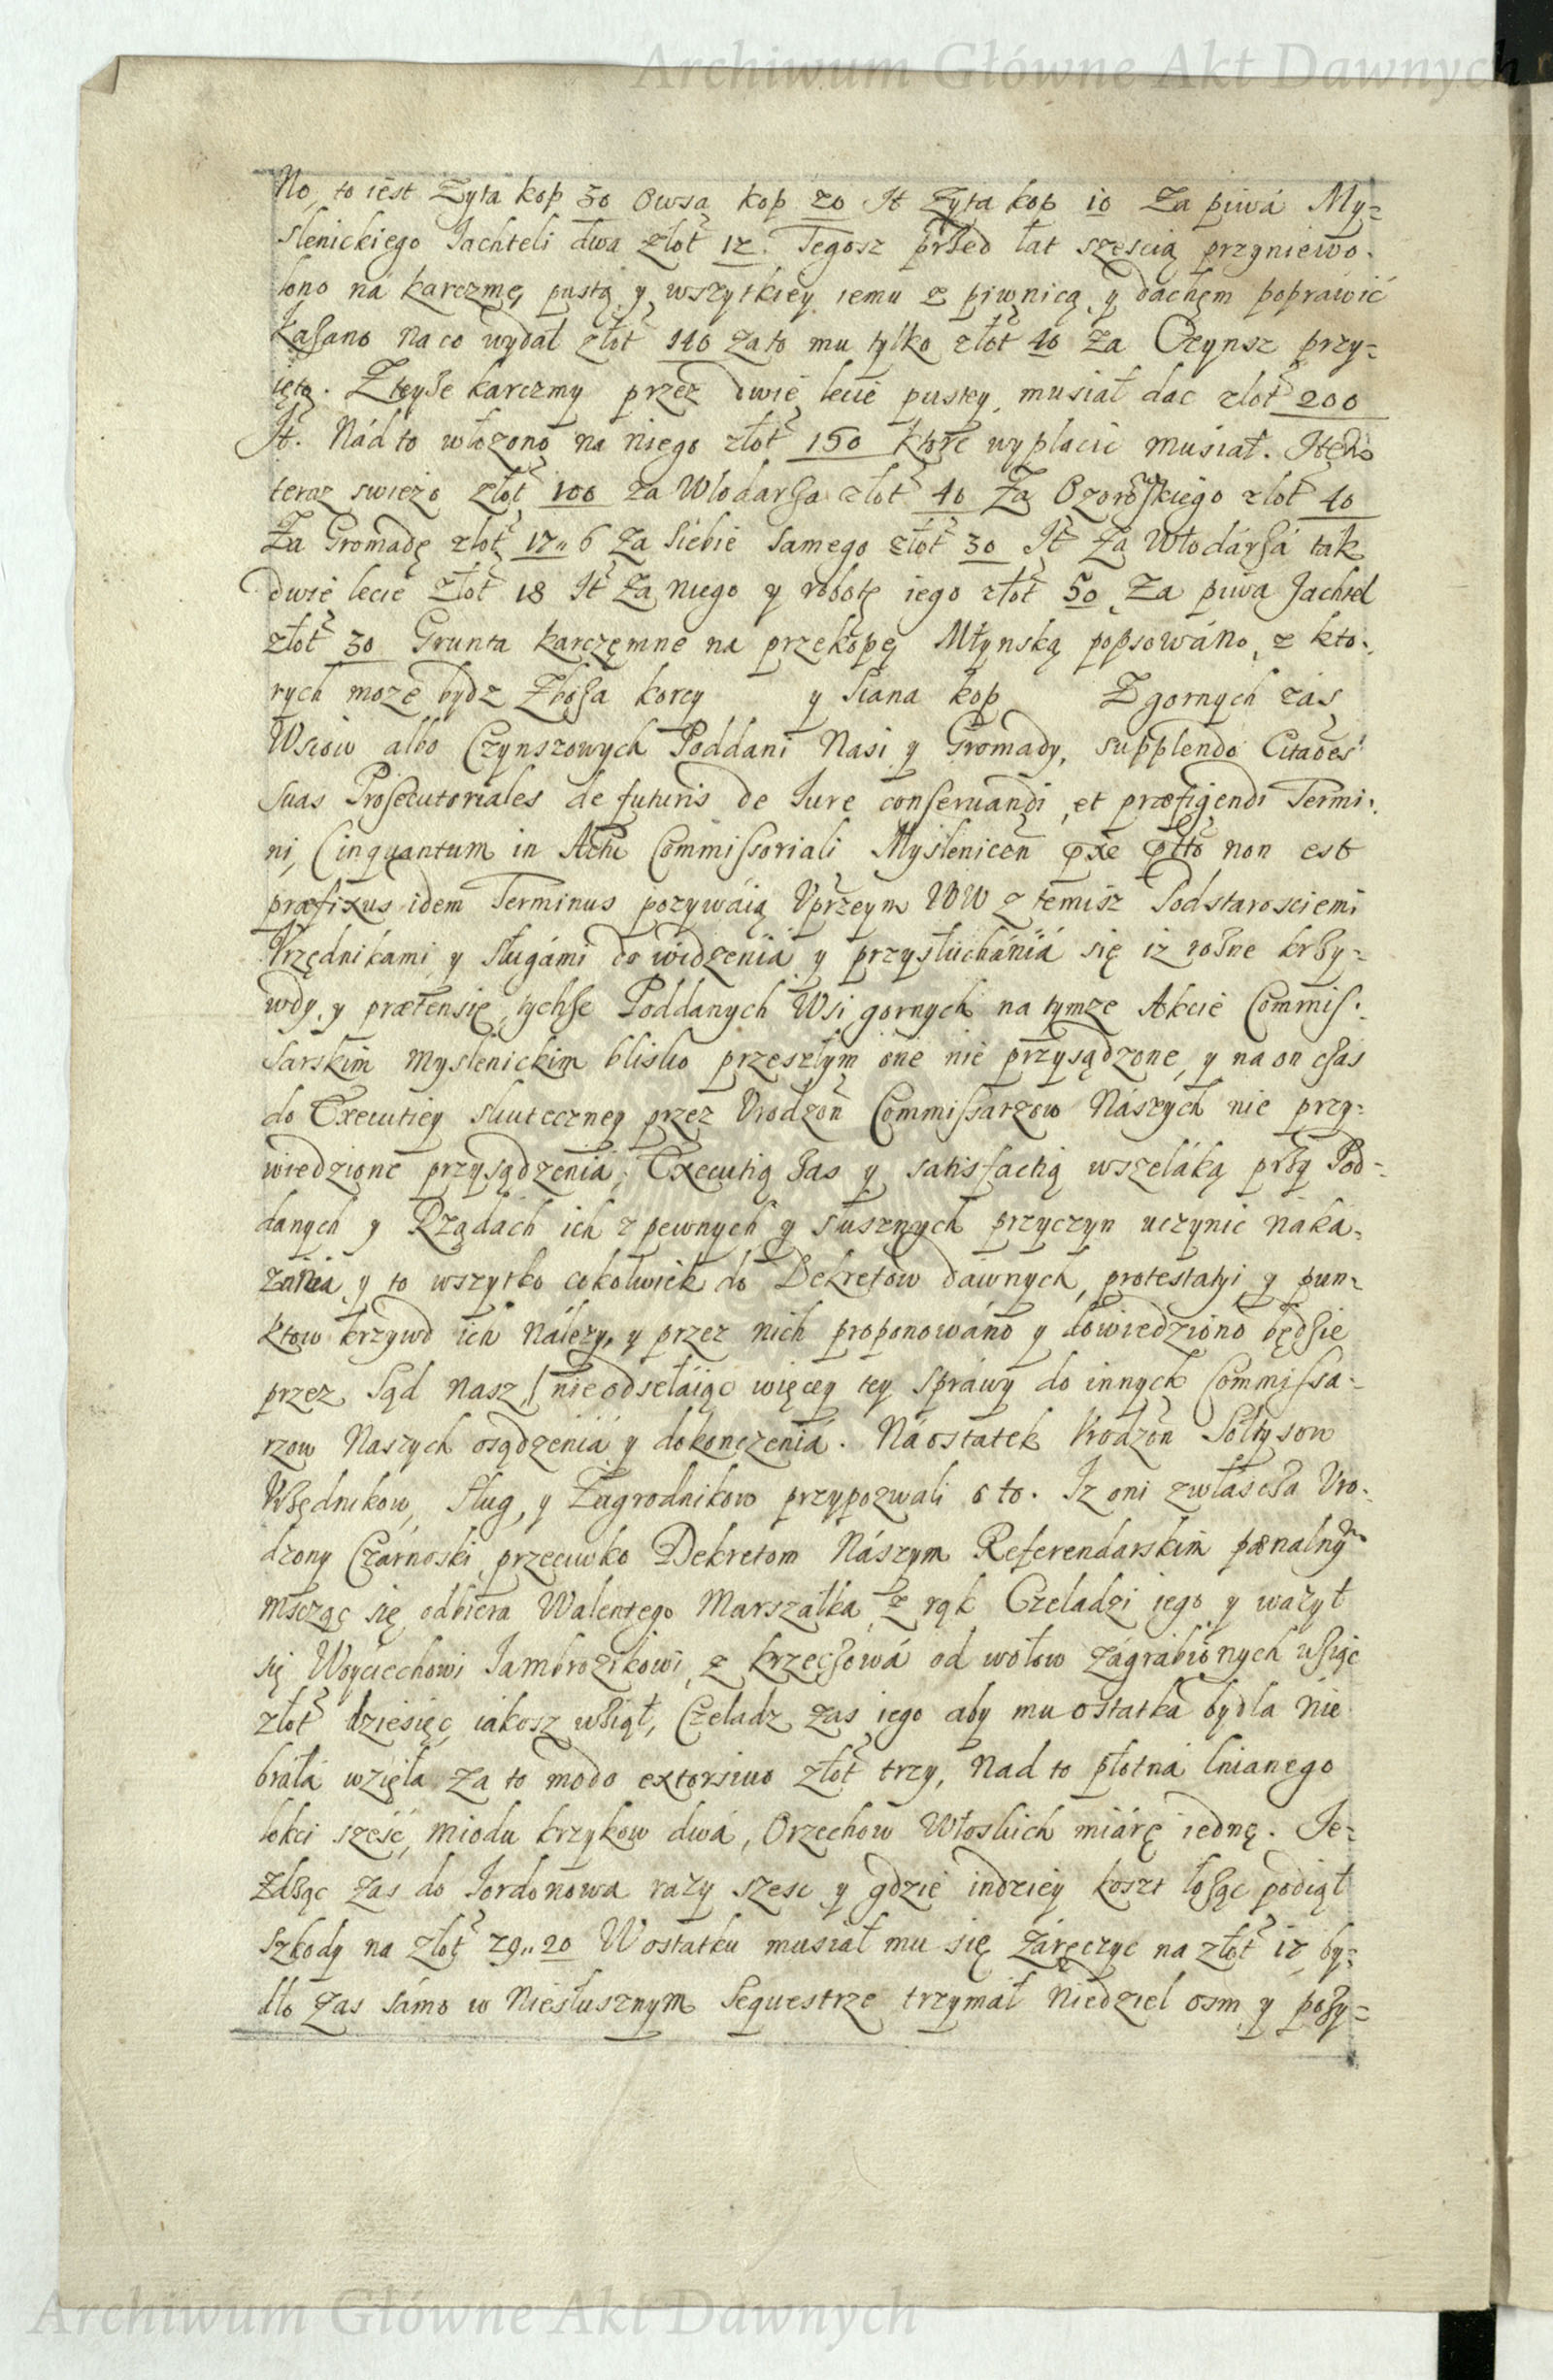 Archiwum Główne Akt Dawnych
No, to iest Zyta kop 30 Owsa kop 20 It Zyta kop 10 Za piwá My=
slenickiego Jachteli dwa złot 12. Tegosz przed lat szescią przyniewo=
lono ná karczmę pustą y wszytkiey iemu z piwnicą y dachęm poprawić
kaſano na co wydał złot 140 zato mu tylko złot 40 Za Czynsz przy=
ięto. Z teyſe karczmy przez dwie lecie pustey, musiał dac złot 200
It. Nád to włozono na niego złot 150 ktore wyplacic musiał. Itęm
teraz swiezo złot 100 za Wlodarſa złot 40 Za Ozoroſkiego złot 40
Za Gromadę złot 17„6 Za siebie samego złot 30 It Za Włodárſá tak
dwie lecie złot 18 It Za niego y robotę iego złot 50 Za piwa Jachtel
złot 30 Grunta karczęmne na przekopę Młynską popsowáno, z kto=
rych moze bydz Zboſa korcy y Siana kop Z gornych zás
Wsiow albo Czynszowych Poddani Nasi y Gromady, supplendo Citaões
suas Prosecutoriales de futuris de Iure conservandi, et præfigendi Termi=
ni, Cinquantum in Actu Commissoriali Myslenicen non est
præfixus idem Terminus pozywáią Vprzeym WW z temisz Podstarosciemi
Vrzędnikami y sługámi do widzeniá y przysłuchániá się iz rozne krzy=
wdy, y prætensię tychſe Poddanych Wsi gornych na tymze Akcie Commis=
sarskim myslenickim blisko przeszłym one nie przysądzone, y na on czas
do Executiey skuteczney przez Vrodzoñ Commissarzow Nászych nie przy=
wiedzione przysądzenia; Executią zas y satisfactią wszeláką przy Pod=
danych y Rządach ich z pewnych y słusznych przyczyn uczynic náka=
zania y to wszytko cokolwiek do Dekretow dáwnych, protestatyi y pun=
ktow krzywd ich nálezy, y przez nich proponowáno y dowiedziono będzie
przez Sąd Nasz, nieodsełáiąc więcey tey spráwy do innych Commissa=
rzow Naszych osądzeniá y dokonczeniá. Ná ostatek Vrodzoñ Sołtysow
Vrzędnikow, sług, y Zagrodnikow przypozwali o to. Iz oni zwłáscza Vro=
dzony Czárnoski przeciwko Dekretom Nászym Referendarskim pænalnym
mscząc się odbiera Walentego Marszałka z rąk Czeladzi iego y wazył
się Woyciechowi Jambrozikowi z krzeczowá od wołow zágrabionych wſiąc
złot dziesięc, iakosz wziął, Czeladz zas iego aby mu ostatka bydła nie
bráłá wzięła za to modo extorsivo złot trzy, Nad to płotná lnianego
łokci szesć, miodu krzykow dwá, Orzechow Włoskich miárę iednę. Ie=
zdząc zas do Iordonowa razy szesc y gdzie indziey koszt łoząc podiął
szkody na złot 29„20 W ostatku musiał mu się záręczyc na złot 12, by=
dło zas sámo w niesłusznym sequestrze trzymał niedziel osm y pozy=
Archiwum Główne Akt Dawnych